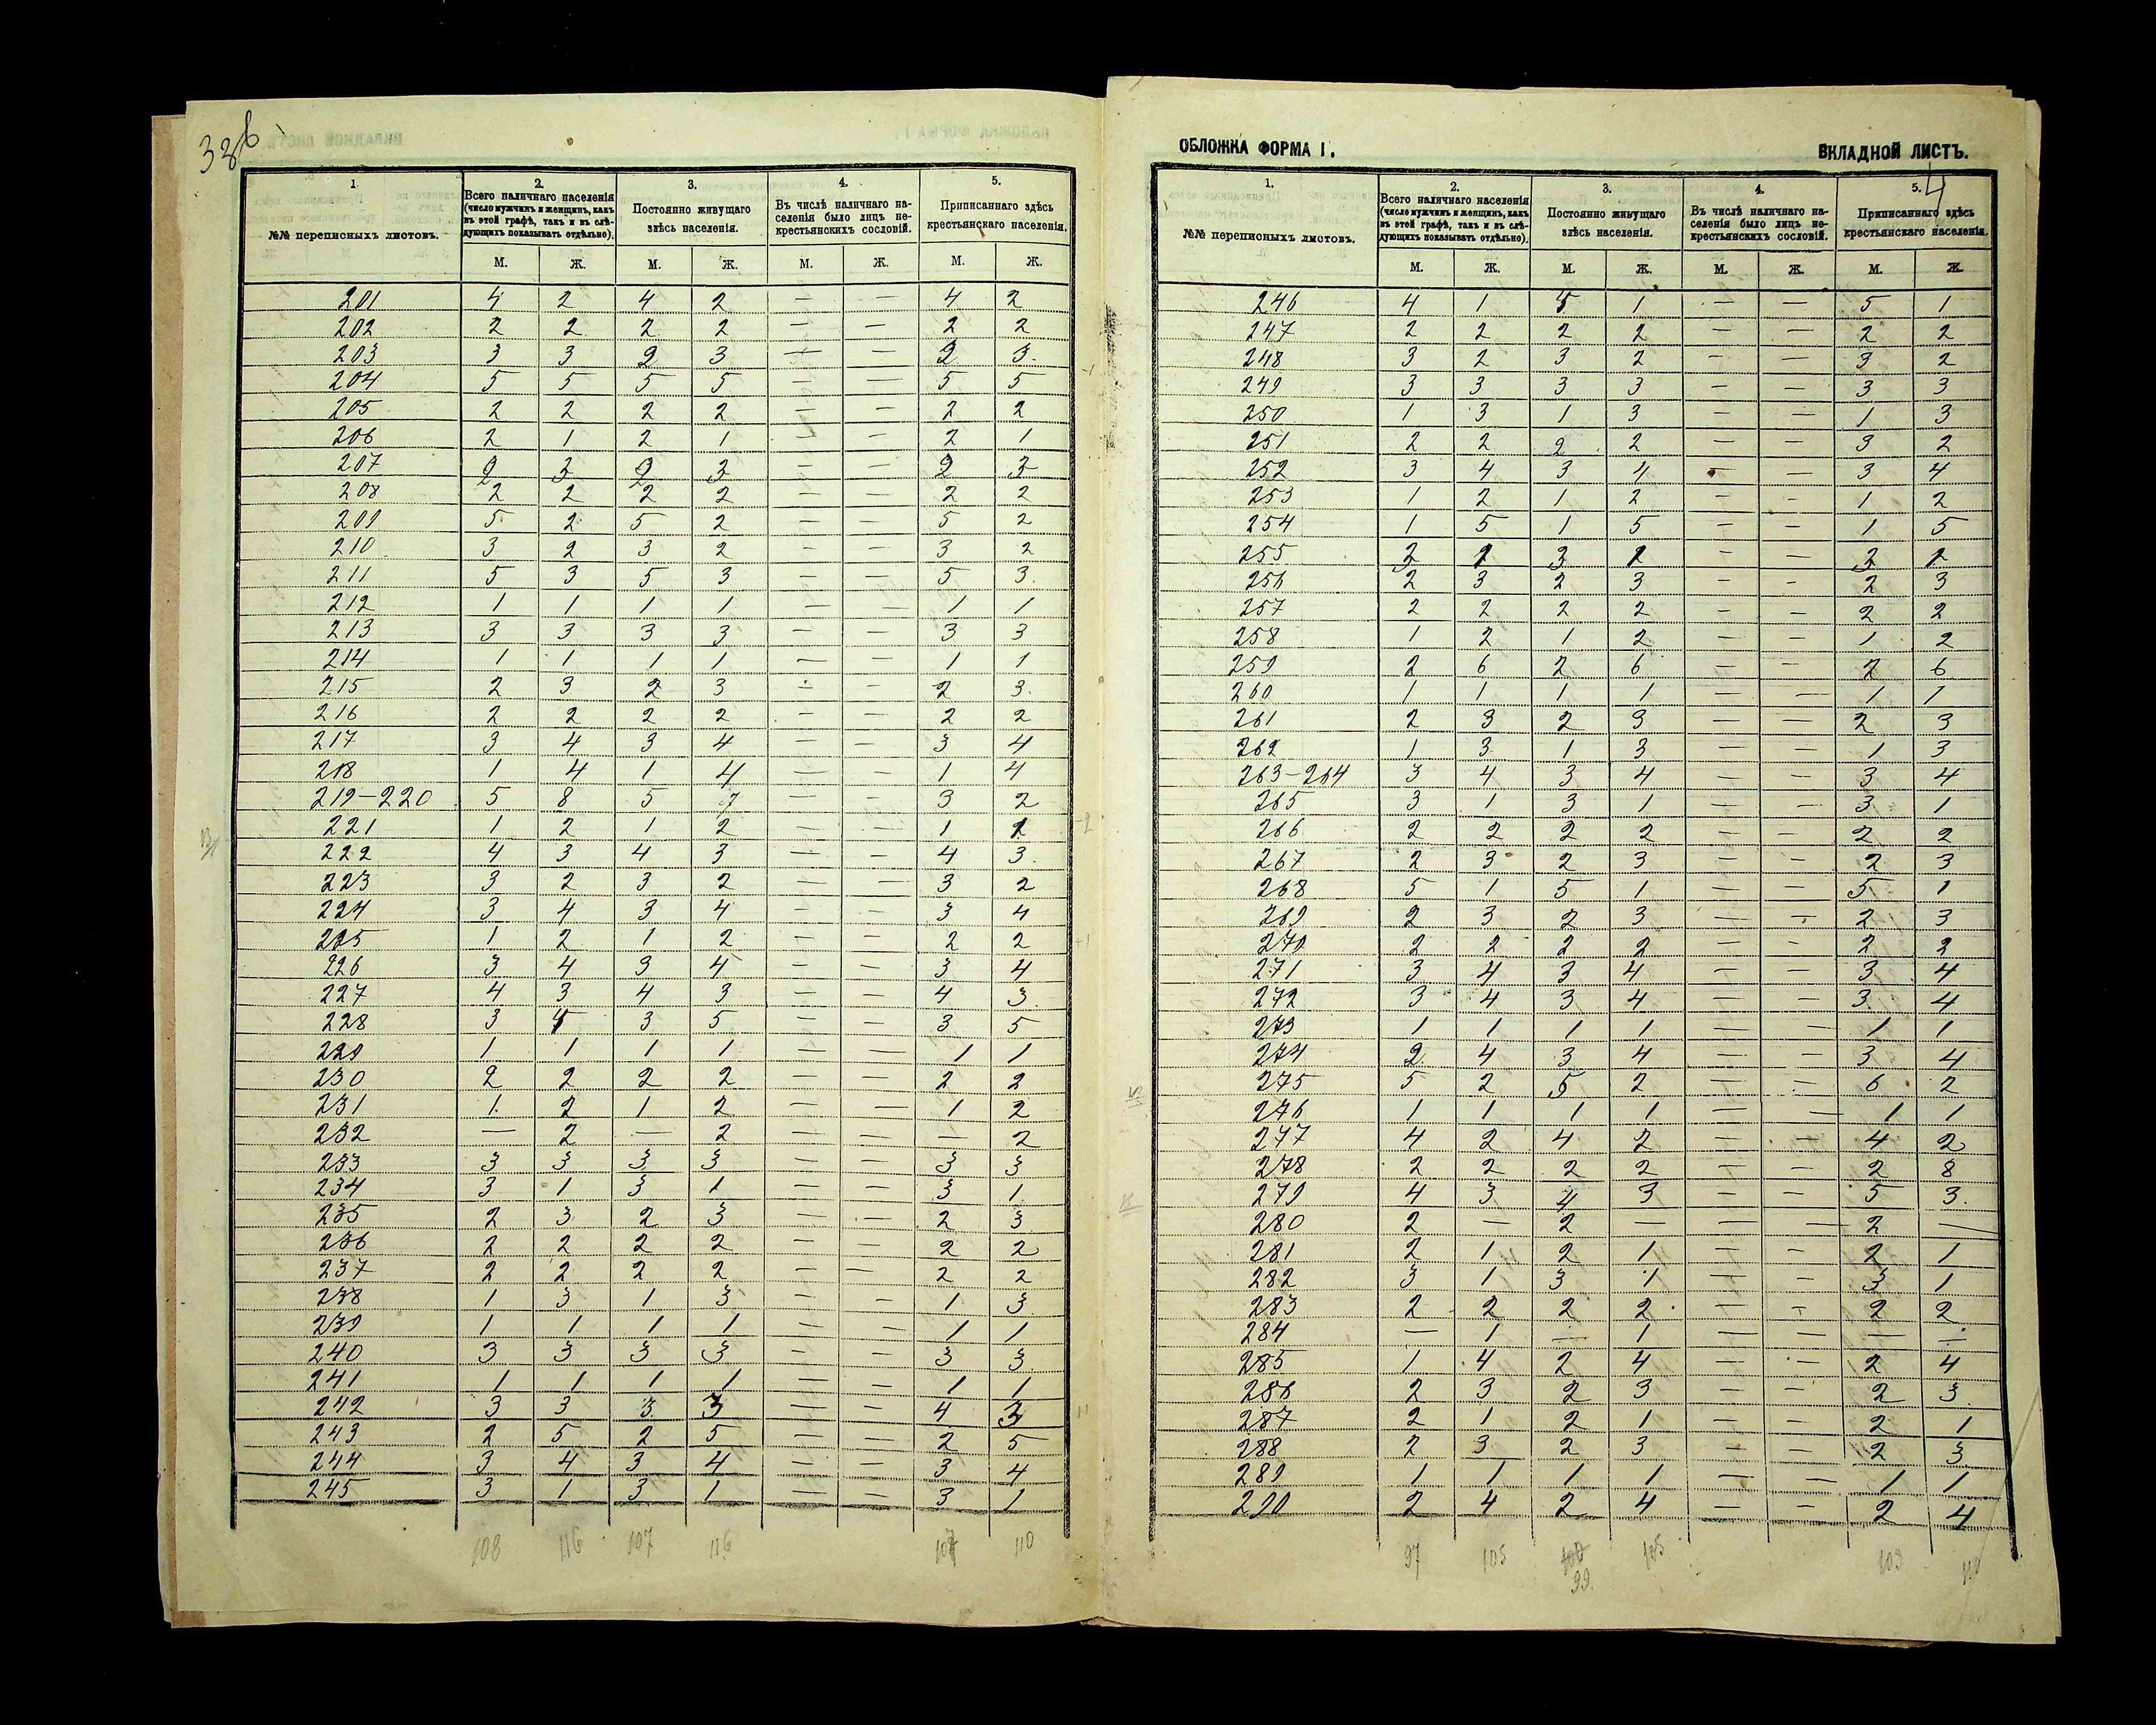 38б
1
№№ переписныхъ листовъ.
2.
Всего наличнаго населенія
(число мужчинъ и женщинъ, какъ
въ этой графѣ, такъ и въ слѣ-
дующихъ показывать отдѣльно).
3.
Постоянно живущаго
здѣсь населенія.
4.
Въ числѣ наличнаго на-
селенія было лицъ не-
крестьянскихъ сословій.
5.
Приписаннаго здѣсь
крестьянскаго населенія.
М. Ж. М. Ж. М. Ж. М. Ж.
201 4 2 4 2 — — 4 2
202 2 2 2 2 — — 2 2
203 3 3 2 3 — — 2 3.
204 5 5 5 5 — — 5 5
205 2 2 2 2 — — 2 2
206 2 1 2 1 — — 2 1
207 2 3 2 3 — — 2 3
208 2 2 2 2 — — 2 2
209 5 2 5 2 — — 5 2
210 3 2 3 2 — — 3 2
211 5 3 5 3 — — 5 3.
212 1 1 1 1 — — 1 1
213 3 3 3 3 — — 3 3
214 1 1 1 1 — — 1 1
215 2 3 2 3 — — 2 3.
216 2 2 2 2 — — 2 2
217 3 4 3 4 — — 3 4
218 1 4 1 4 — — 1 4
219-220 5 8 5 7 — — 3 2
221 1 2 1 2 — — 1 1
222 4 3 4 3 — — 4 3.
223 3 2 3 2 — — 3 2
224 3 4 3 4 — — 3 4
225 1 2 1 2 — — 2 2
226 3 4 3 4 — — 3 4
227 4 3 4 3 — — 4 3
228 3 5 3 5 — — 3 5
229 1 1 1 1 — — 1 1
230 2 2 2 2 — — 2 2
231 1 2 1 2 — — 1 2
232 — 2 — 2 — — — 2
233 3 3 3 3 — — 3 3
234 3 1 3 1 — — 3 1
235 2 3 2 3 — — 2 3
236 2 2 2 2 — — 2 2
237 2 2 2 2 — — 2 2
238 1 3 1 3 — — 1 3
239 1 1 1 1 — — 1 1
240 3 3 3 3 — — 3 3
241 1 1 1 1 — — 1 1
242 3 3 3 3 — — 4 3
243 2 5 2 5 — — 2 5
244 3 4 3 4 — — 3 4
245 3 1 3 1 — — 3 1
108 116 107 116 110
ОБЛОЖКА ФОРМА I.
ВКЛАДНОЙ ЛИСТЪ.
4
1.
№№ переписныхъ листовъ.
2.
Всего наличнаго населенія
(число мужчинъ и женщинъ, какъ
въ этой графѣ, такъ и въ слѣ-
дующихъ показывать отдѣльно).
3.
Постоянно живущаго
здѣсь населенія.
4.
Въ числѣ наличнаго на-
селенія было лицъ не-
крестьянскихъ сословій.
5.
Приписаннаго здѣсь
крестьянскаго населенія.
М. Ж. М. Ж. М. Ж. М. Ж.
246 4 1 5 1 — — 5 1
247 2 2 2 2 — — 2 2
248 3 2 3 2 — — 3 2
249 3 3 3 3 — — 3 3
250 1 3 1 3 — — 1 3
251 2 2 2 2 — — 3 2
252 3 4 3 4 — 3 4
253 1 2 1 2 — — 1 2
254 1 5 1 5 — — 1 5
255 3 1 3 1 — — 3 1
256 2 3 2 3 — — 2 3
257 2 2 2 2 — — 2 2
258 1 2 1 2 — — 1 2
259 2 6 2 6 — — 2 6
260 1 1 1 1 — — 1 1
261 2 3 2 3 — — 2 3
262 1 3 1 3 — — 1 3
263-264 3 4 3 4 — — 3 4
265 3 1 3 1 — — 3 1
266 2 2 2 2 — — 2 2
267 2 3 2 3 — — 2 3
268 5 1 5 1 — — 5 1
269 2 3 2 3 — — 2 3
270 2 2 2 2 — — 2 2
271 3 4 3 4 — — 3 4
272 3 4 3 4 — — 3 4
273 1 1 1 1 — — 1 1
274 2 4 3 4 — — 3 4
275 5 2 5 2 — — 6 2
276 1 1 1 1 — — 1 1
277 4 2 4 2 — — 4 2
278 2 2 2 2 — — 2 8
279 4 3 4 3 — — 5 3.
280 2 — 2 — — — 2 —
281 2 1 2 1 — — 2 1
282 3 1 3 1 — — 3 1
283 2 2 2 2 — — 2 2
284 — 1 — 1 — — — —
285 1 4 2 4 — — 2 4
286 2 3 2 3 — — 2 3
287 2 1 2 1 — — 2 1
288 2 3 2 3 — — 2 3
289 1 1 1 1 — — 1 1
290 2 4 2 4 — — 2 4
97 105 100 105 103
99.